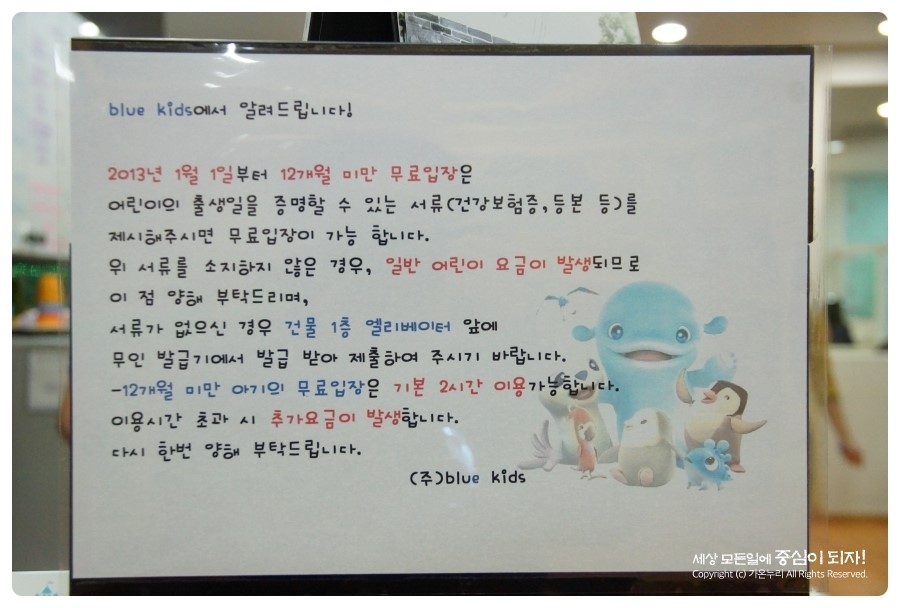 blue kids에서 알려드립니다!
2013년 1월 1일부터 12개월 미만 무료입장은
어린이의 출생일을 증명할 수 있는 서류(건강보험증,등본 등)를
제시해주시면 무료입장이 가능 합니다.
위 서류를 소지하지 않은 경우, 일반 어린이 요금이 발생되므로
이 점 양해 부탁드리며,
서류가 없으신 경우 건물 1층 엘리베이터 앞에
무인 발급기에서 발급 받아 제출하여 주시기 바랍니다.
-12개월 미만 아기의 무료입장은 기본 2시간 이용가능합니다.
이용시간 초과 시 추가요금이 발생합니다.
다시 한번 양해 부탁드립니다.
(주)blue kids
세상 모든일에 중심이 되자!
Copyright (c) 가온누리 All Rights Reserved.